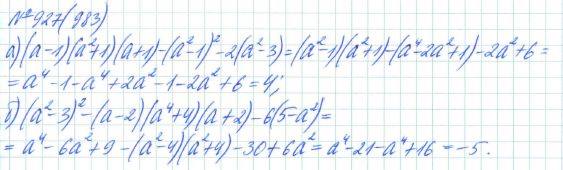 №927(983)
а) (a-1)(a²+1)(a+1)-(a²-1)²-2(a²-3)=(a²-1)(a²+1)-(a⁴-2a²+1)-2a²+6=
=a⁴-1-a⁴+2a²-1-2a²+6=4;
б) (a²-3)²-(a-2)(a⁴+4)(a+2)-6(5-a²)=
=a⁴-6a²+9-(a²-4)(a²+4)-30+6a²=a⁴-21-a⁴+16=-5.